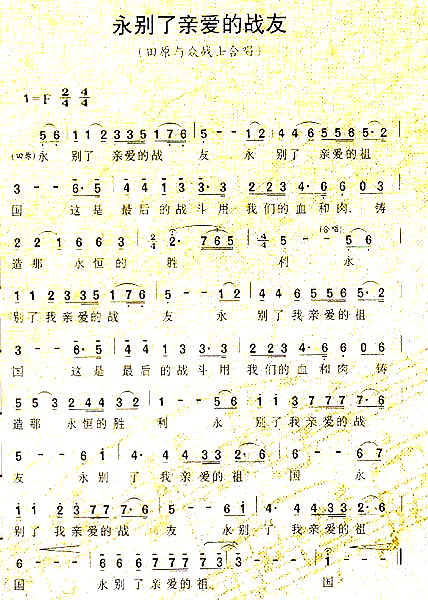 永别了亲爱的战友
(田原与众战士合唱)
1=F 2/4 4/4
5 6 1 1 2 3 3 3 5 1 7 6 | 5 - - 1 2 | 4 4 6 5 5 5 6 5· 2 |
(田原)永 别了 亲爱的战 友 永 别了 亲爱的祖
3 - - 6· 5 | 4 4 1 3 3· 3 | 2 2 3 4· 6 6 0 3 |
国 这是 最后的战斗用 我们的血和肉、铸
2 2 1 6 6 3 | 2/4 2· 7 6 5 | 4/4 5 - (合唱) 5 6 |
造那 永恒的 胜 利 永
1 1 2 3 3 5 1 7 6 | 5 - - 1 2 | 4 4 6 5 5 6 5· 2 |
别了我亲爱的战 友 永 别了我亲爱的祖
3 - - 6· 5 | 4 4 1 3 3· 3 | 2 2 3 4· 6 0 6 |
国 这是 最后的战斗用 我们的血和肉 铸
5 5 3 2 4 4 3 2 | 1 - - 5 6 | 1 1 3 7 7 7 7· 6 |
造那 永恒的胜 利 永 别了我亲爱的战
5 - - 6 1 | 4· 4 3 3 2· 6 | 6 - - 6 7 |
友 永别 了 我亲爱的祖 国 永
1 1 2 3 7 7 7· 6 | 5 - - 6 1 | 4· 4 3 3 2· 6 |
别了 我亲爱的战 友 永别 了 我亲爱的祖
6 - - - | 6 6 6 7 7 7 7· 3 | 1 - - - |
国 永别了亲爱的祖 国